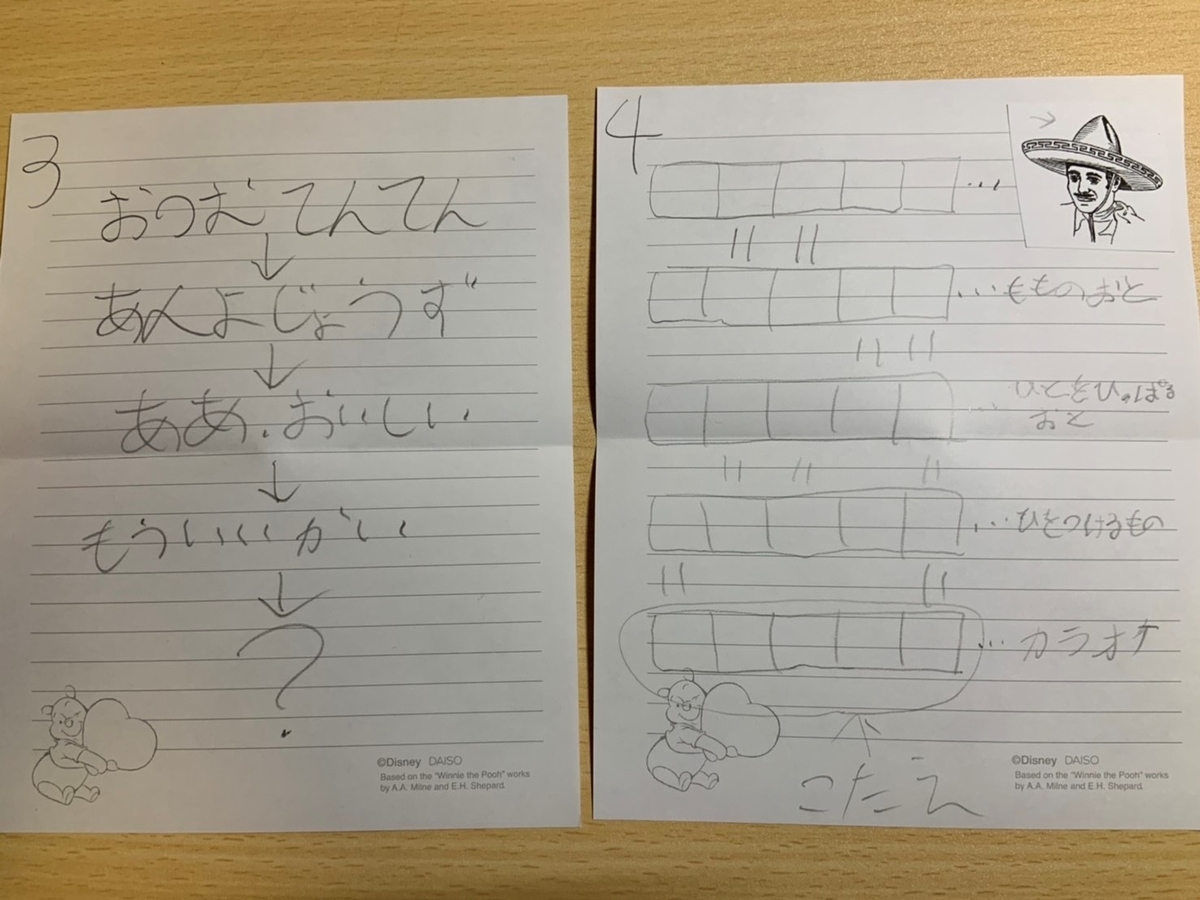 3
おつむてんてん
↓
あんよじょうず
↓
ああ、おいしい
↓
もういいかい
↓
?
©Disney DAISO
Based on the "Winnie the Pooh" works
by A.A. Milne and E.H. Shepard.
4
→
...
...もものおと
...ひとをひっぱる
おと
...ひをつけるもの
...カラオケ
↑
こたえ
©Disney DAISO
Based on the "Winnie the Pooh" works
by A.A. Milne and E.H. Shepard.